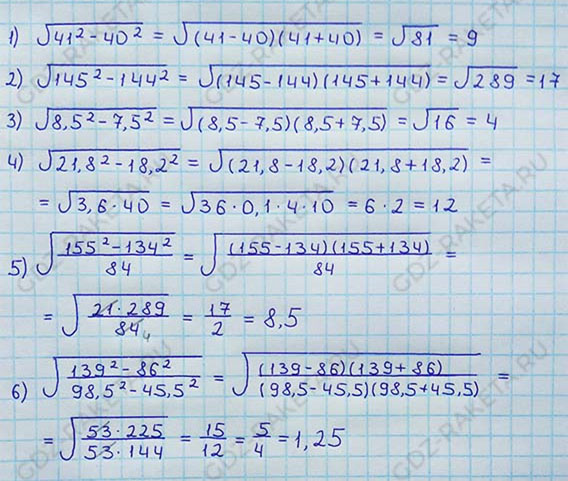 1) √(41² - 40²) = √((41-40)(41+40)) = √81 = 9
2) √(145² - 144²) = √((145-144)(145+144)) = √289 = 17
3) √(8,5² - 7,5²) = √((8,5-7,5)(8,5+7,5)) = √16 = 4
4) √(21,8² - 18,2²) = √((21,8-18,2)(21,8+18,2)) =
= √(3,6·40) = √(36·0,1·4·10) = 6·2 = 12
5) √((155² - 134²)/84) = √((155-134)(155+134)/84) =
= √(21·289/84 4) = 17/2 = 8,5
6) √((139² - 86²)/(98,5² - 45,5²)) = √((139-86)(139+86)/((98,5-45,5)(98,5+45,5))) =
= √(53·225/(53·144)) = 15/12 = 5/4 = 1,25
GDZ-RAKETA.RU